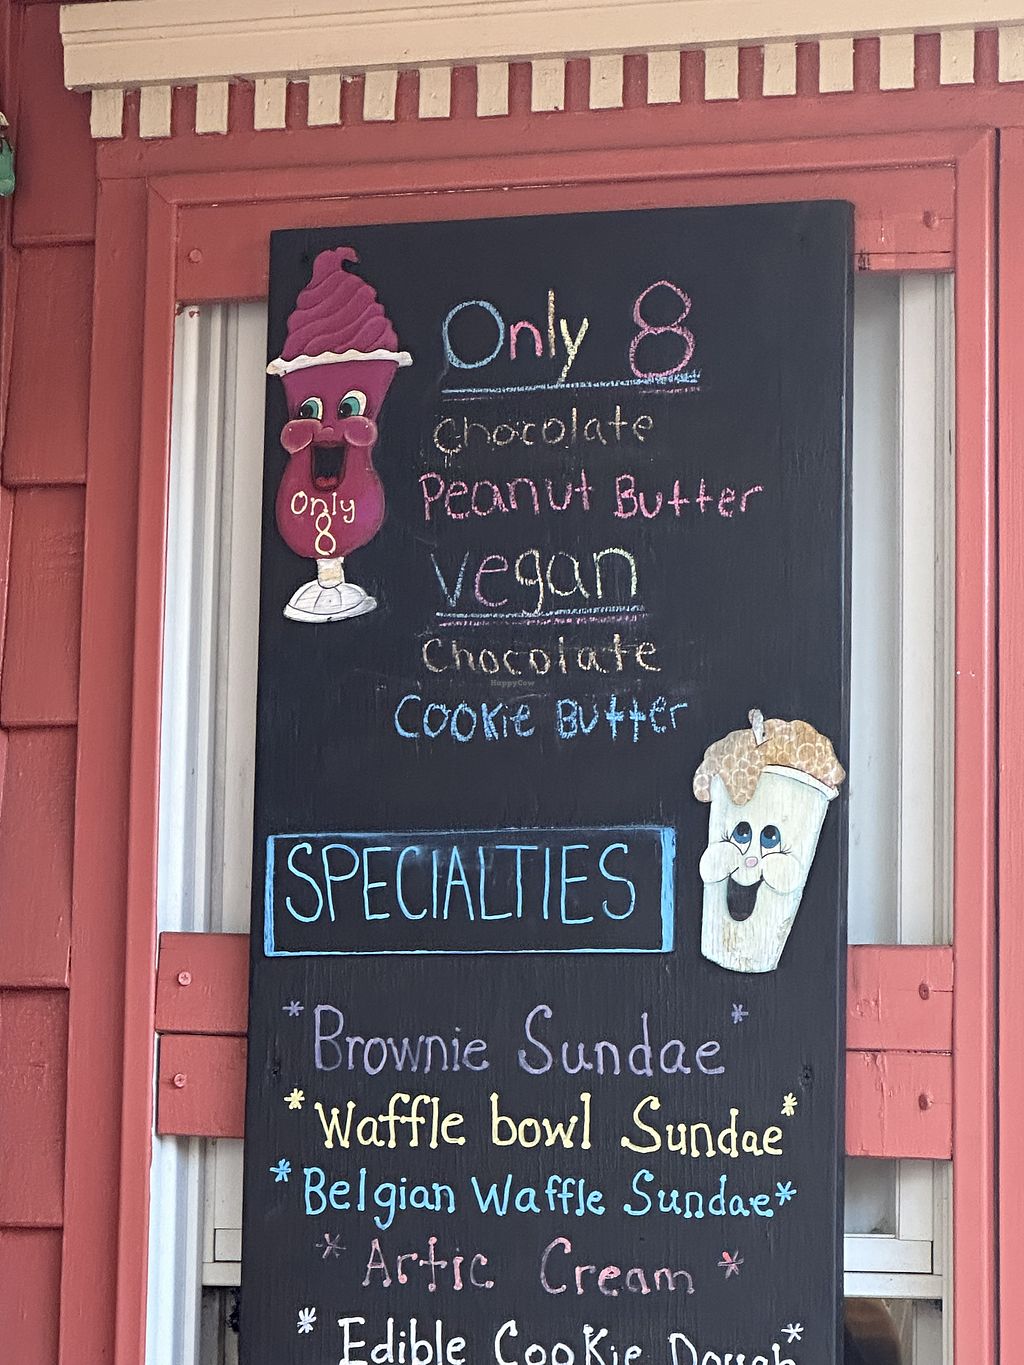 Only 8
Chocolate
Peanut Butter
Only
8
vegan
Chocolate
HappyCow
Cookie Butter
SPECIALTIES
* Brownie Sundae *
* Waffle bowl Sundae *
* Belgian Waffle Sundae *
* Artic Cream *
* Edible Cookie Dough *